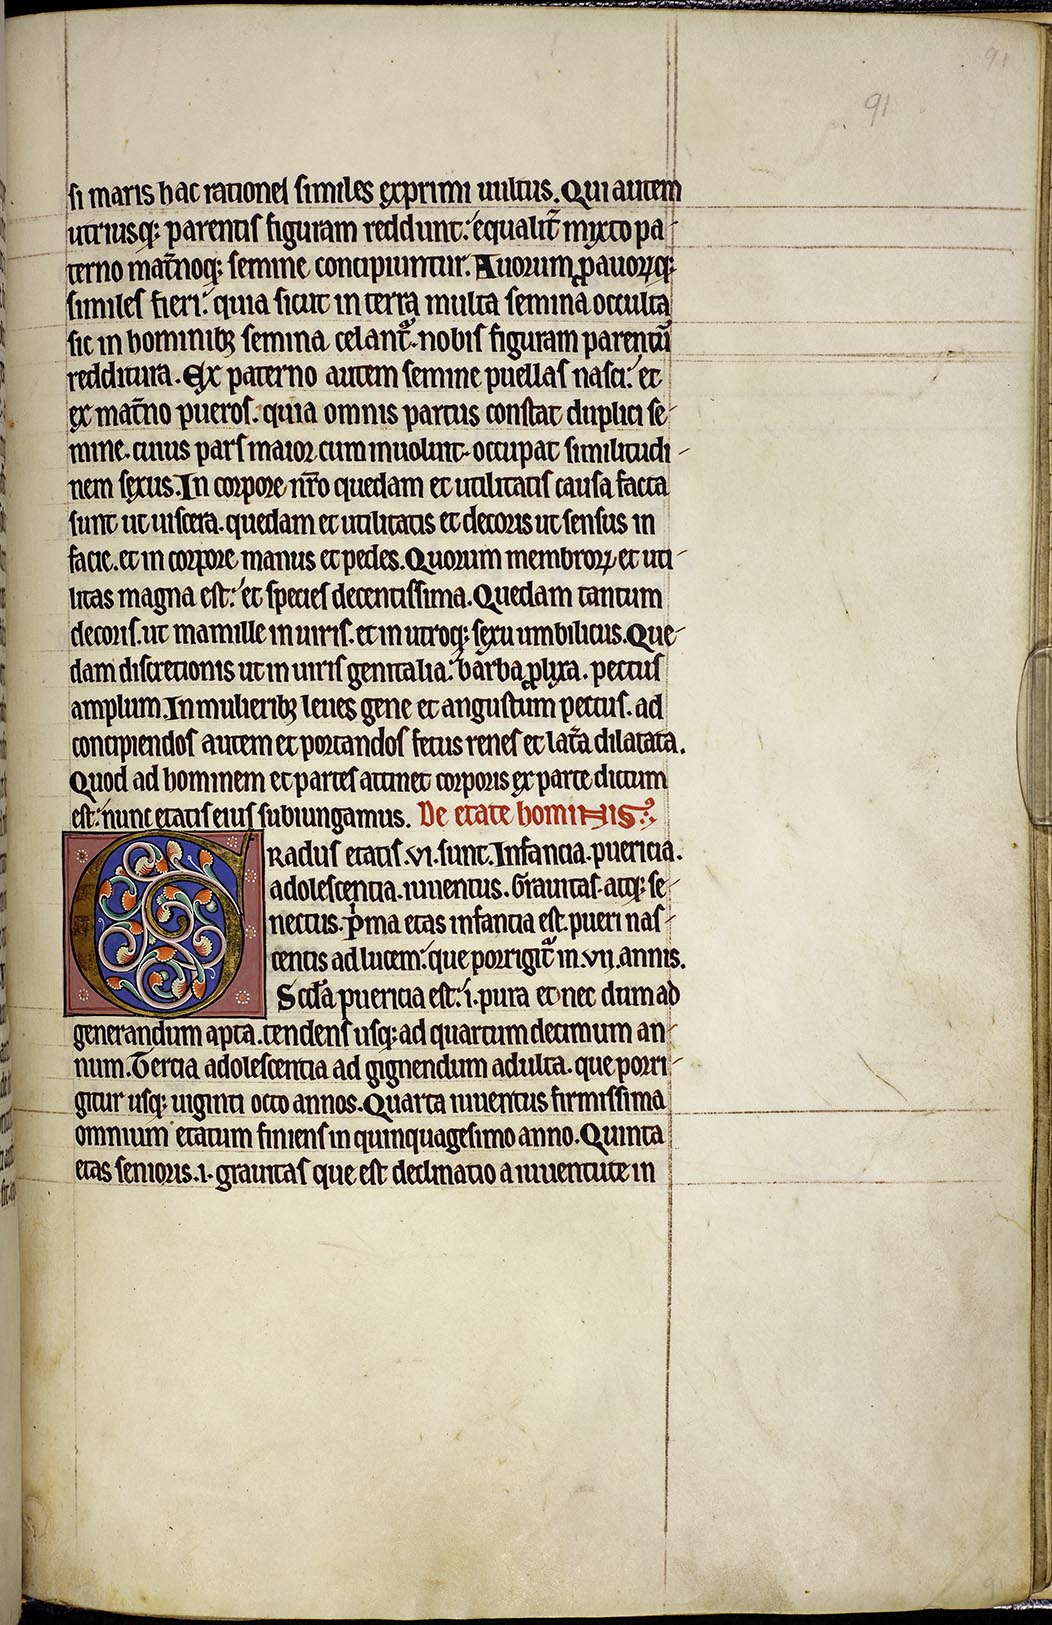 91
91
si maris hac rationel similes exprimi uultus. Qui autem
utriusq; parentis figuram reddunt: equalit̄ mixto pa-
terno mat̄noq; semine concipiuntur. Auorum ꝓauorꝝq;
similes fieri: quia sicut in terra multa semina occulta
sic in hominibꝫ semina celant᷑. nobis figuram parentū
redditura. Ex paterno autem semine puellas nasci: et
ex mat̄no pueros. quia omnis partus constat duplici se-
mine. cuius pars maior cum inuoluit. occupat similitudi-
nem sexus. In corpore nr̄o quedam et utilitatis causa facta
sunt ut uiscera. quedam et utilitatis et decoris ut sensus in
facie. et in corpore manus et pedes. Quorum membrorꝝ et uti-
litas magna est: et species decentissima. Quedam tantum
decoris. ut mamille in uiris. et in utroq; sexu umbilicus. Que-
dam discretionis ut in uiris genitalia: barba ꝓlixa. pectus
amplum. In mulieribꝫ leues gene et angustum pectus. ad
concipiendos autem et portandos fetus renes et lat̄a dilatata.
Quod ad hominem et partes attinet corporis ex parte dictum
est: nunc etatis eius subiungamus. De etate hominis
GRadus etatis .vi. sunt. Infancia. puericia.
adolescentia. iuuentus. Grauitas. atq; se-
nectus. P᷒ma etas infantia est. pueri nas-
centis ad lucem: que porrigit᷑ in .vii. annis.
Scd̄a puericia est: .i. pura et nec dum ad
generandum apta. tendens usq; ad quartum decimum an-
num. Tercia adolescentia ad gignendum adulta. que porri-
gitur usq; uiginti octo annos. Quarta iuuentus firmissima
omnium etatum finiens in quinquagesimo anno. Quinta
etas senioris .i. grauitas que est declinatio a iuuentute in